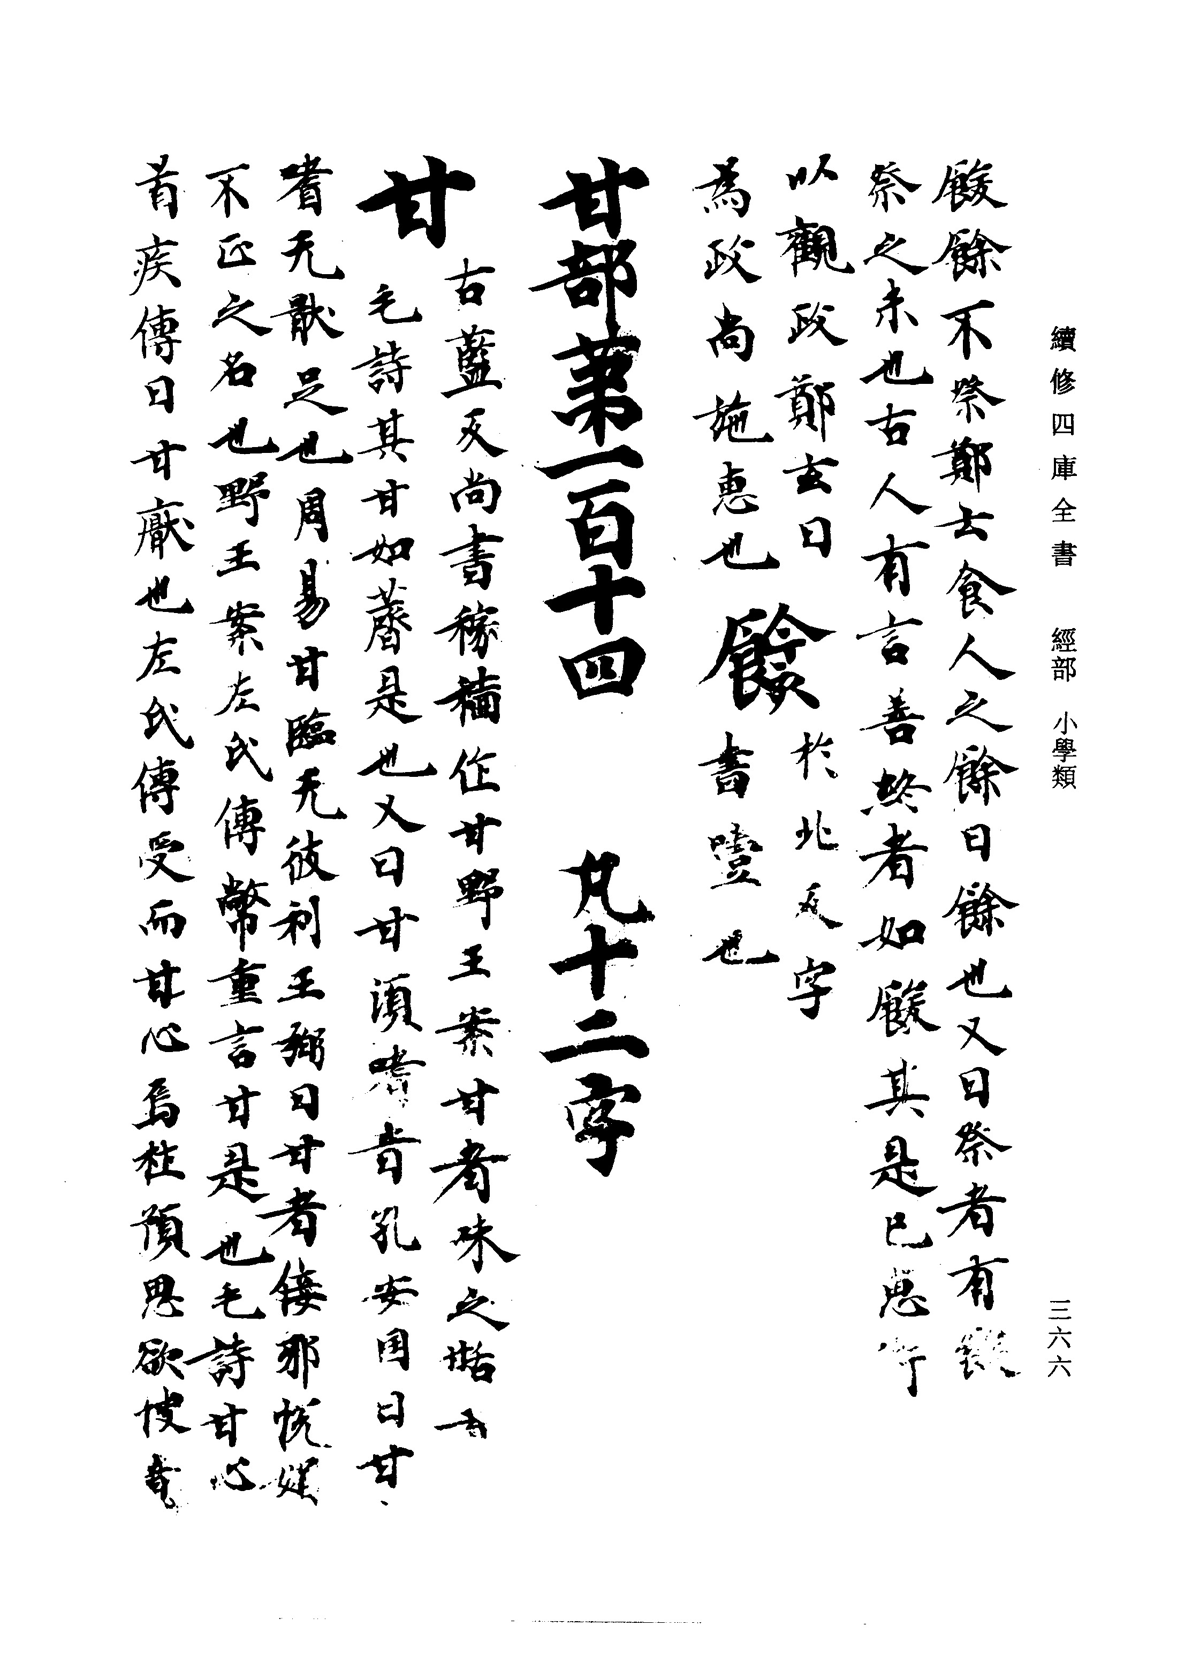 續修四庫全書 經部 小學類
三六六
餕餘不祭鄭玄食人之餘曰餘也又曰祭者有
祭之末也古人有言善終者如餕其是已惠
以觀政鄭玄曰
為政尚施惠也
䭓
於北反字
書噎也
甘部第一百十四 凡十二字
甘
古藍反尚書稼穡作甘野王案甘者味之甛
毛詩其甘如薺是也又曰甘湏嗜音孔安国曰甘
嗜无猒足也周易甘臨无彼利王弼曰甘者佞邪恱媚
不正之名也野王案左氏傳幣重言甘是也毛詩甘心
首疾傳曰甘猒也左氏傳受而甘心焉杜預思欲快意